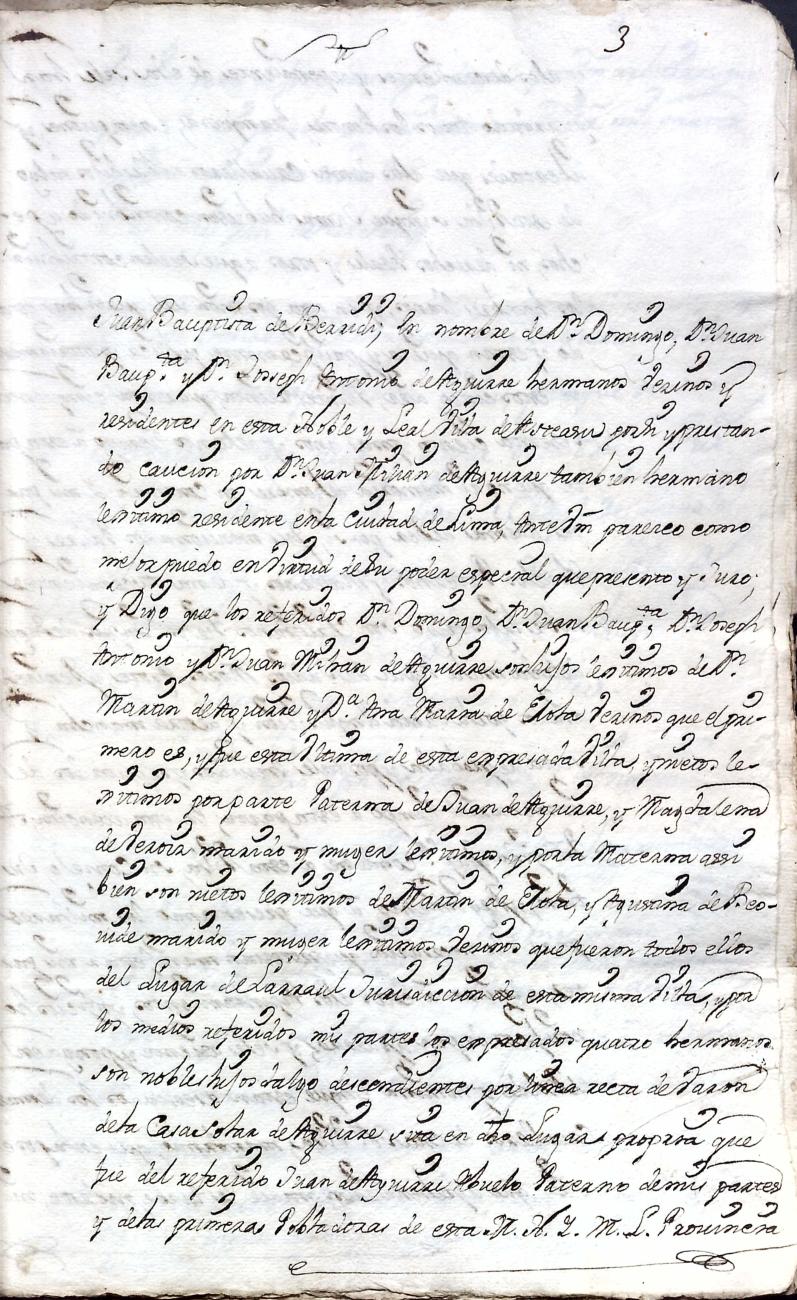 3
Juan Bauptista de Berridi, en nombre de Dn. Domingo, Dn. Juan
Baupta. y Dn. Joseph Antonio de Aguirre hermanos vecinos y
residentes en esta Noble y Leal Villa de Asteasu por si y prestan-
do caucion por Dn. Juan Millan de Aguirre tambien hermano
lexitimo residente en la Ciudad de Lima, Ante Vm parezco como
mejor puedo en virtud de su poder especial que presento y Juro;
y Digo que los referidos Dn. Domingo, Dn. Juan Baupta. Dn. Joseph
Antonio y Dn. Juan Milian de Aguirre son hijos lexitimos de Dn.
Martin de Aguirre y Da. Ana Maria de Elola vecinos que el pri-
mero es, y fue esta Ultima de esta expresada Villa, y nietos le-
xitimos por parte Paterna de Juan de Aguirre, y Magdalena
de marido y muger lexitimos, y por la Materna assi
bien son nietos lexitimos de Martin de Elola, y Agustina de Beo-
uide marido y muger lexitimos vecinos que fueron todos ellos
del Lugar de Larraul Jurisdiccion de esta misma Villa, y por
los medios referidos mis partes los expresados quatro hermanos
son nobles hijos dalgo descendientes por linea recta de varon
de la Casa Solar de Aguirre sita en dho Lugar propria que
fue del referido Juan de Aguirre Abuelo Paterno de mis partes
y de las primeras Pobladoras de esta M. N. Y. M. L. Provincia